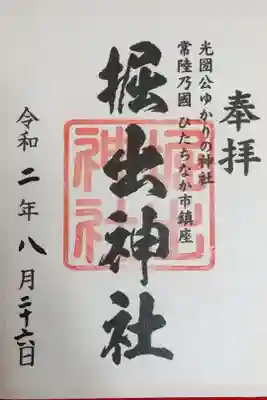 奉拝
光圀公ゆかりの神社
常陸乃國 ひたちなか市鎮座
堀出神社
令和二年八月二十六日